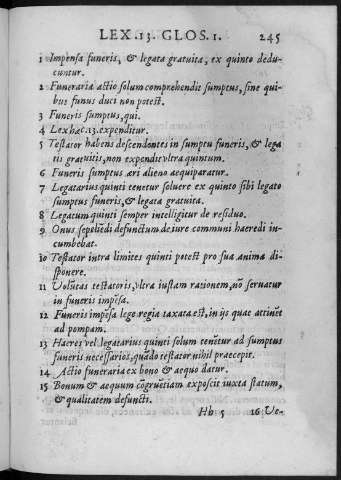 LEX .13. GLOS. 1. 245
1 Impensa funeris, & legata gratuita, ex quinto dedu-
cuntur.
2 Funeraria actio solum comprehendit sumptus, sine qui-
bus funus duci non potest.
3 Funeris sumptus, qui.
4 Lex hæc .13. expenditur.
5 Testator habens descendentes in sumptu funeris, & lega
tis gratuitis, non expendit vltra quintum.
6 Funeris sumptus æri alieno aequiparatur.
7 Legatarius quinti tenetur soluere ex quinto sibi legato
sumptus funeris, & legata gratuita.
8 Legatum quinti semper intelligitur de residuo.
9 Onus sepeliẽdi defunctum de iure communi haeredi in-
cumbebat.
10 Testator intra limites quinti potest pro sua anima di-
sponere.
11 Volũtas testatoris, vltra iustam rationem, nõ seruatur
in funeris impẽsa.
12 Funeris impẽsa lege regia taxata est, in ijs quae attinẽt
ad pompam.
13 Haeres vel legatarius quinti solum tenẽtur ad sumptus
funeris necessarios, quãdo testator nihil praecepit.
14 Actio funeraria ex bono & aequo datur.
15 Bonum & aequum cõgruẽtiam exposcit iuxta statum,
& qualitatem defuncti.
Hh 5 16 Ue-